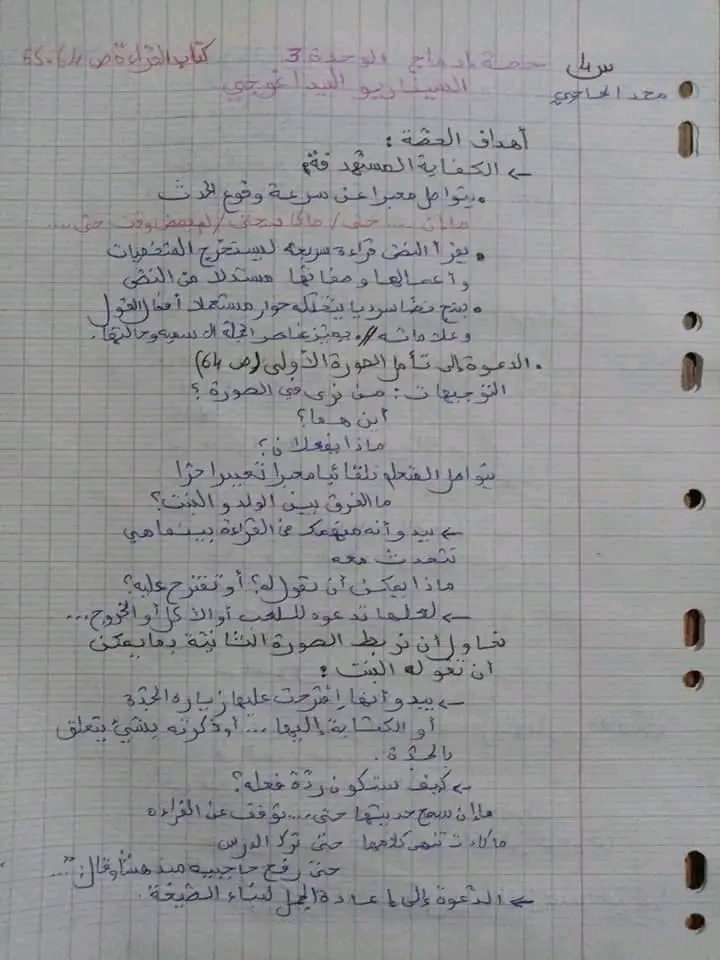 س 4 حصة إدماج الوحدة 3 كتاب القراءة ص 64-65
محمد الحاجي السيناريو البيداغوجي
أهداف الحصة :
← الكفاية المستهدفة
• يتواصل معبرا عن سرعة وقوع الحدث
ما إن ... حتى / ما كاد ... حتى / لم يمض وقت حتى ...
• يقرأ النص قراءة سريعة ليستخرج الشخصيات
وأعمالها وصفاتها مستدلا من النص
• ينتج نصا سرديا يتخلله حوار مستعملا أفعال القول
وعلاماته // يميز عناصر الجملة الاسمية وحالتها.
• الدعوة إلى تأمل الصورة الأولى (ص 64)
التوجيهات : من نرى في الصورة ؟
أين هما؟
ماذا يفعلان؟
يتواصل المتعلم تلقائيا معبرا تعبيرا حرا
ما الفرق بين الولد والبنت؟
← يبدو أنه منهمك في القراءة بينما هي
تتحدث معه
ماذا يمكن أن تقول له؟ أو تقترح عليه؟
← لعلها تدعوه للعب أو الأكل أو الخروج ...
نحاول أن نربط الصورة الثانية بما يمكن
أن تقوله البنت :
← يبدو أنها اقترحت عليها زيارة الجدة
أو الكتابة إليها ... أو ذكرته بشيء يتعلق
بالجدة.
← كيف ستكون ردة فعله؟
ما إن سمع حديثها حتى ... توقف عن القراءة
ما كادت تنهي كلامها حتى ترك الدرس
حتى رفع حاجبيه مندهشا وقال : "...
← الدعوة إلى إعادة الجمل لبناء الصيغة.